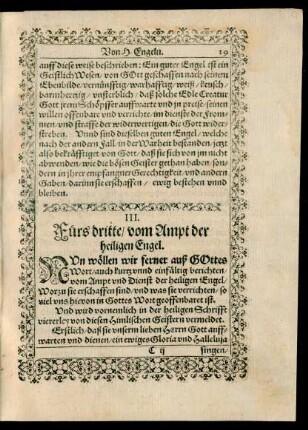 Von H. Engeln. 19
auff diese weise beschrieben: Ein guter Engel ist ein
Geistlich Wesen, von GOtt geschaffen nach seinem
Ebenbilde, vernünfftig, warhafftig, weiß, keusch,
barmhertzig, vnsterblich, daß solche Edle Creatur
Gott jrem Schöpffer auffwarte vnd jn preise, seinen
willen offenbare vnd verrichte, im dienste der From-
men, vnd straffe der widerwertigen, die Gott wider-
streben. Vnnd sind dieselben guten Engel, welche
nach der andern Fall, in der Warheit bestanden, jetzt
also bekräfftiget von Gott, daß sie sich von jm nicht
abwenden, wie die bösen Geister gethan haben, son-
dern in jhrer empfangner Gerechtigkeit, vnd andern
Gaben, darinn sie erschaffen, ewig bestehen vnnd
bleiben.
III.
Fürs dritte, vom Ampt der
heiligen Engel.
NVn wöllen wir ferner auß GOttes
Wort, auch kurtz vnnd einfältig berichten,
vom Ampt vnd Dienst der heiligen Engel,
Worzu sie erschaffen sind, vnd was sie verrichten, so
viel vns hievon in Gottes Wort geoffenbaret ist.
Vnd wird vornemlich in der heiligen Schrifft
viererley von diesen Himlischen Geistern vermeldet.
Erstlich, daß sie vnserm lieben Herrn Gott auff-
warten vnd dienen, ein ewiges Gloria vnd Halleluja
C ij singen,